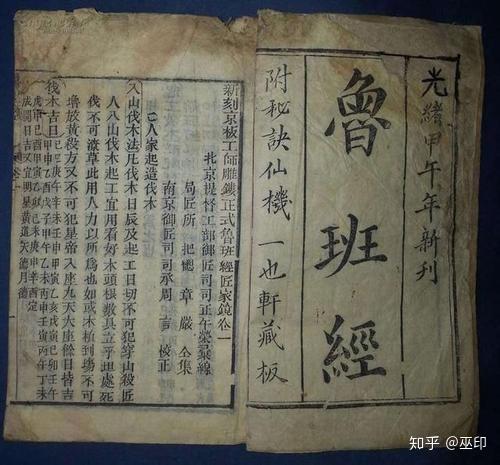 光緒甲午年新刊
魯班經
附秘訣仙機 一也軒藏板
新刻京板工師雕鏤正式魯班經匠家鏡卷一
北京提督工部御匠司司正午榮彙編
局匠所 把總 章嚴 仝集
南京御匠司司承周言 校正
人家起造伐木
入山伐木法凡伐木日辰及起工日切不可犯穿山殺匠
人入山伐木起工宜用看好木頭根數具立平坦處斫
伐不可潦草此用人力以所為也如或木植到塲不可
堆放黃殺方又不可犯皇帝八座九天大座餘日皆吉
伐木吉日
知乎 @巫印